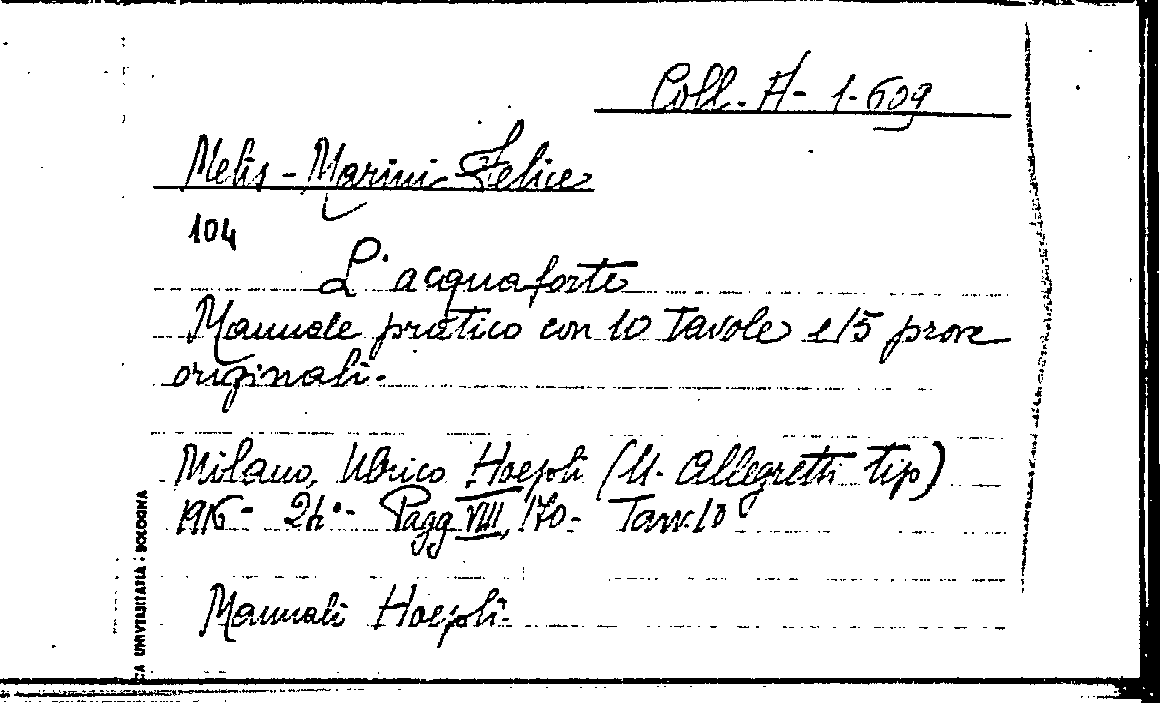 Coll. A- 1-609
Melis-Marini Felice
104
L'acquaforte
Manuale pratico con 10 Tavole e 15 prove
originali.
Milano, Ulrico Hoepli (U. Allegretti tip)
1916- 24°- Pagg VIII, 170- Tavv. 10
Manuali Hoepli.
CA UNIVERSITARIA - BOLOGNA